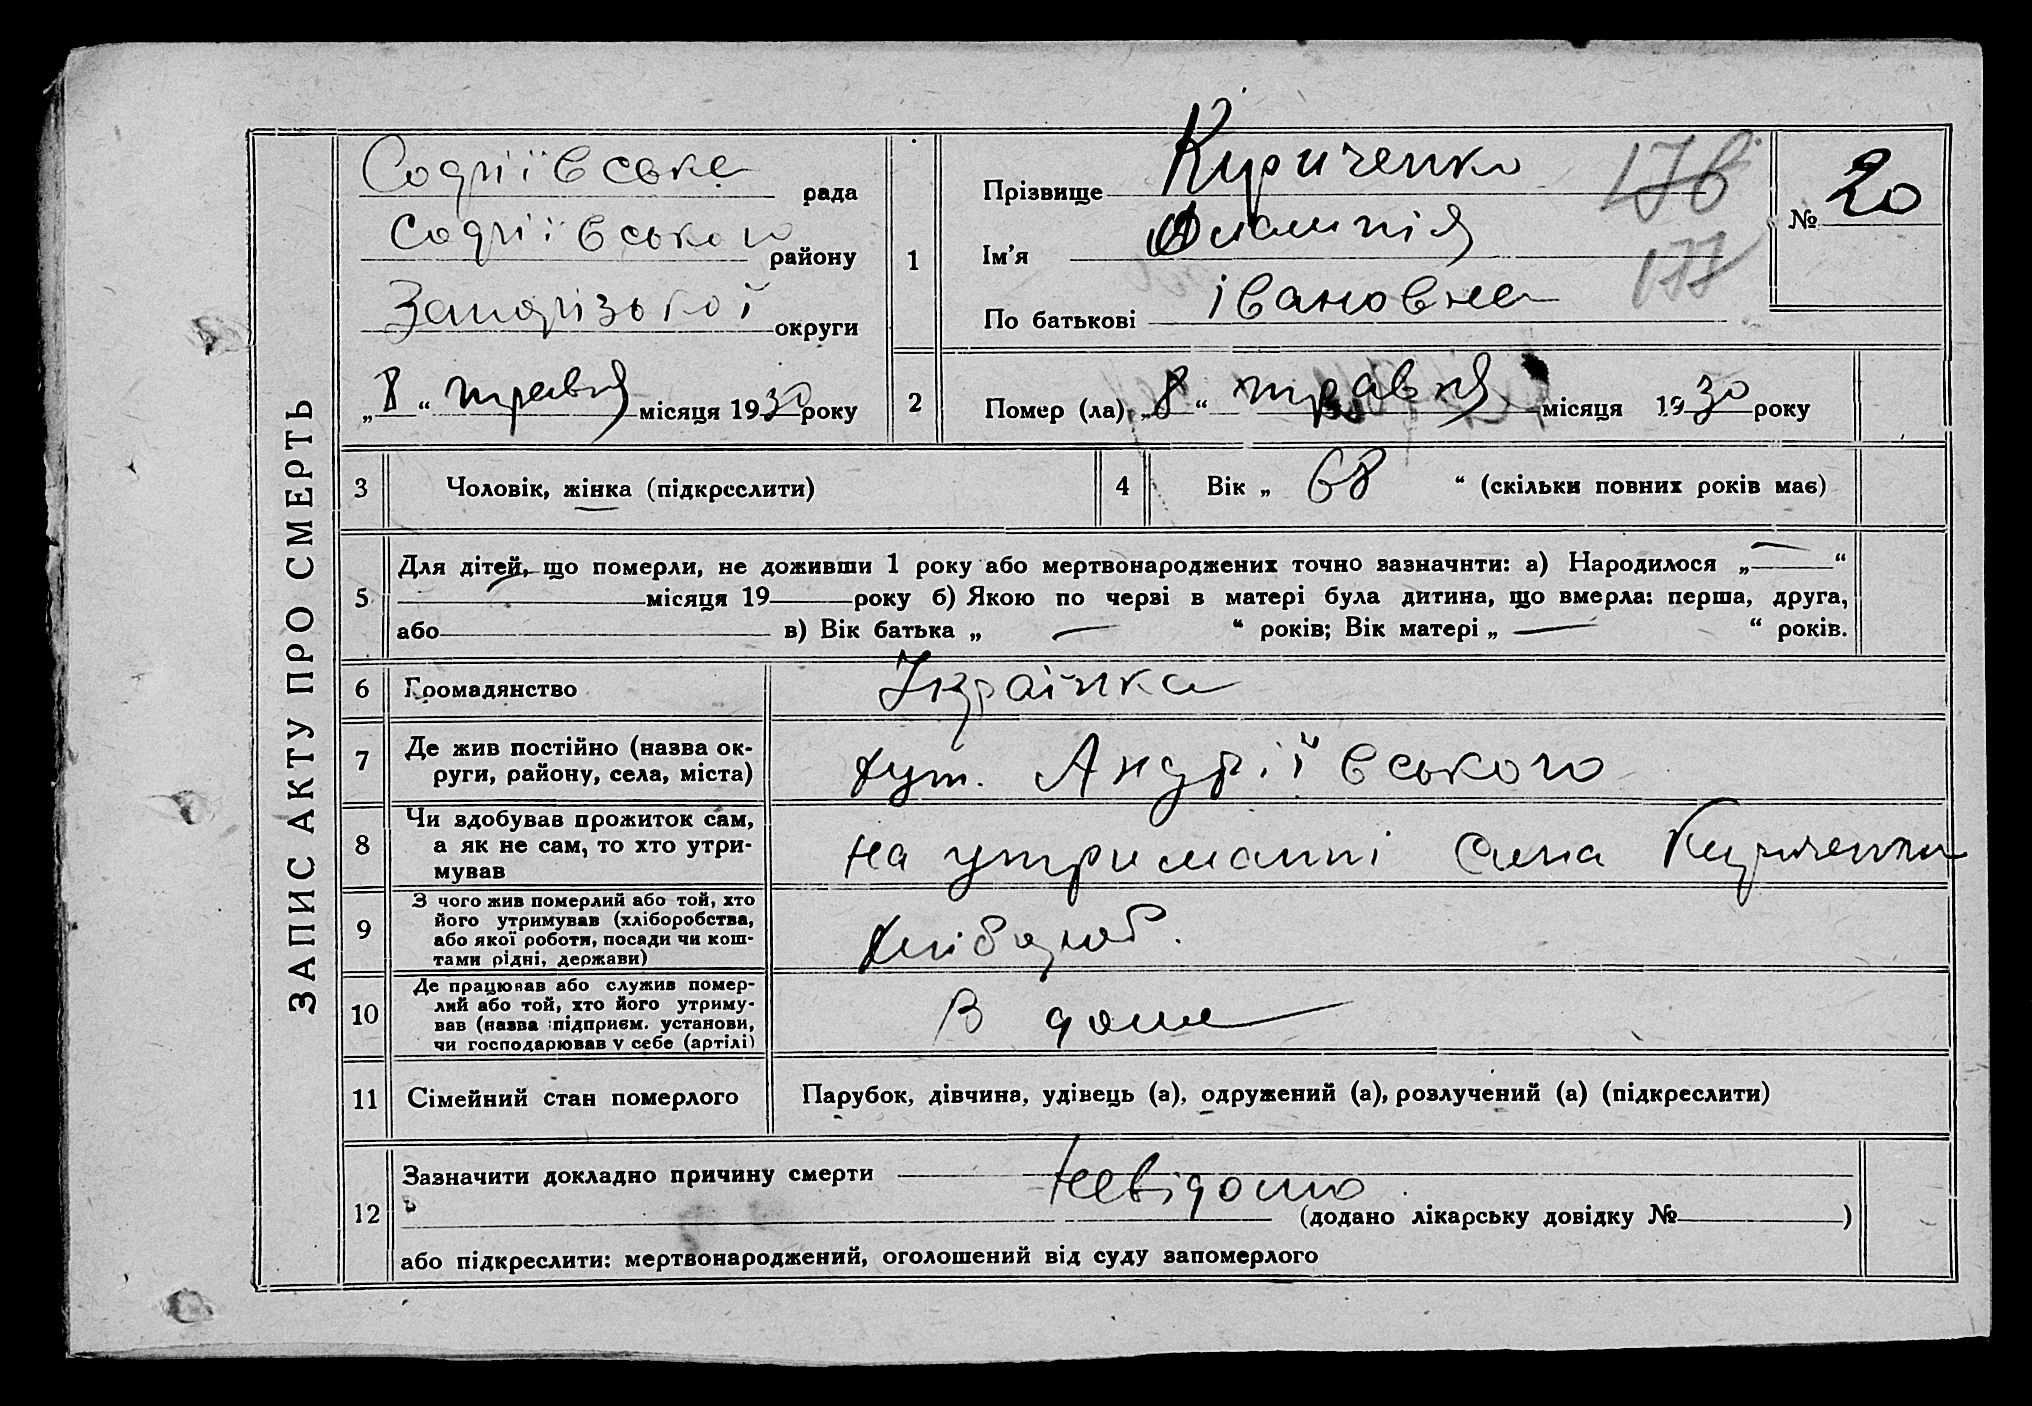 ЗАПИС АКТУ ПРО СМЕРТЬ
Софіївська рада
Софіївського району
Запорізької округи
„8“ травня місяця 1930 року
1
Прізвище Кириченко
Ім'я
По батькові Івановна
178
177
№ 20
2
Помер (ла) „8“ травня місяця 1930 року
3
Чоловік, жінка (підкреслити)
4
Вік „68“ (скільки повних років має)
5
Для дітей, що померли, не доживши 1 року або мертвонароджених точно зазначити: а) Народилося „—“
місяця 19 року б) Якою по черзі в матері була дитина, що вмерла: перша, друга,
або в) Вік батька „ — “ років; Вік матері „ — “ років.
6
Громадянство
Українка
7
Де жив постійно (назва ок-
руги, району, села, міста)
хут. Андріївського
8
Чи здобував прожиток сам,
а як не сам, то хто утри-
мував
на утриманні сина Кириченка
9
З чого жив померлий або той, хто
його утримував (хліборобства,
або якої роботи, посади чи кош-
тами рідні, держави)
хлібороб.
10
Де працював або служив помер-
лий або той, хто його утриму-
вав (назва підприєм. установи,
чи господарював у себе (артілі)
В дома
11
Сімейний стан померлого
Парубок, дівчина, удівець (а), одружений (а), розлучений (а) (підкреслити)
12
Зазначити докладно причину смерти
Невідомо
(додано лікарську довідку № )
або підкреслити: мертвонароджений, оголошений від суду запомерлого